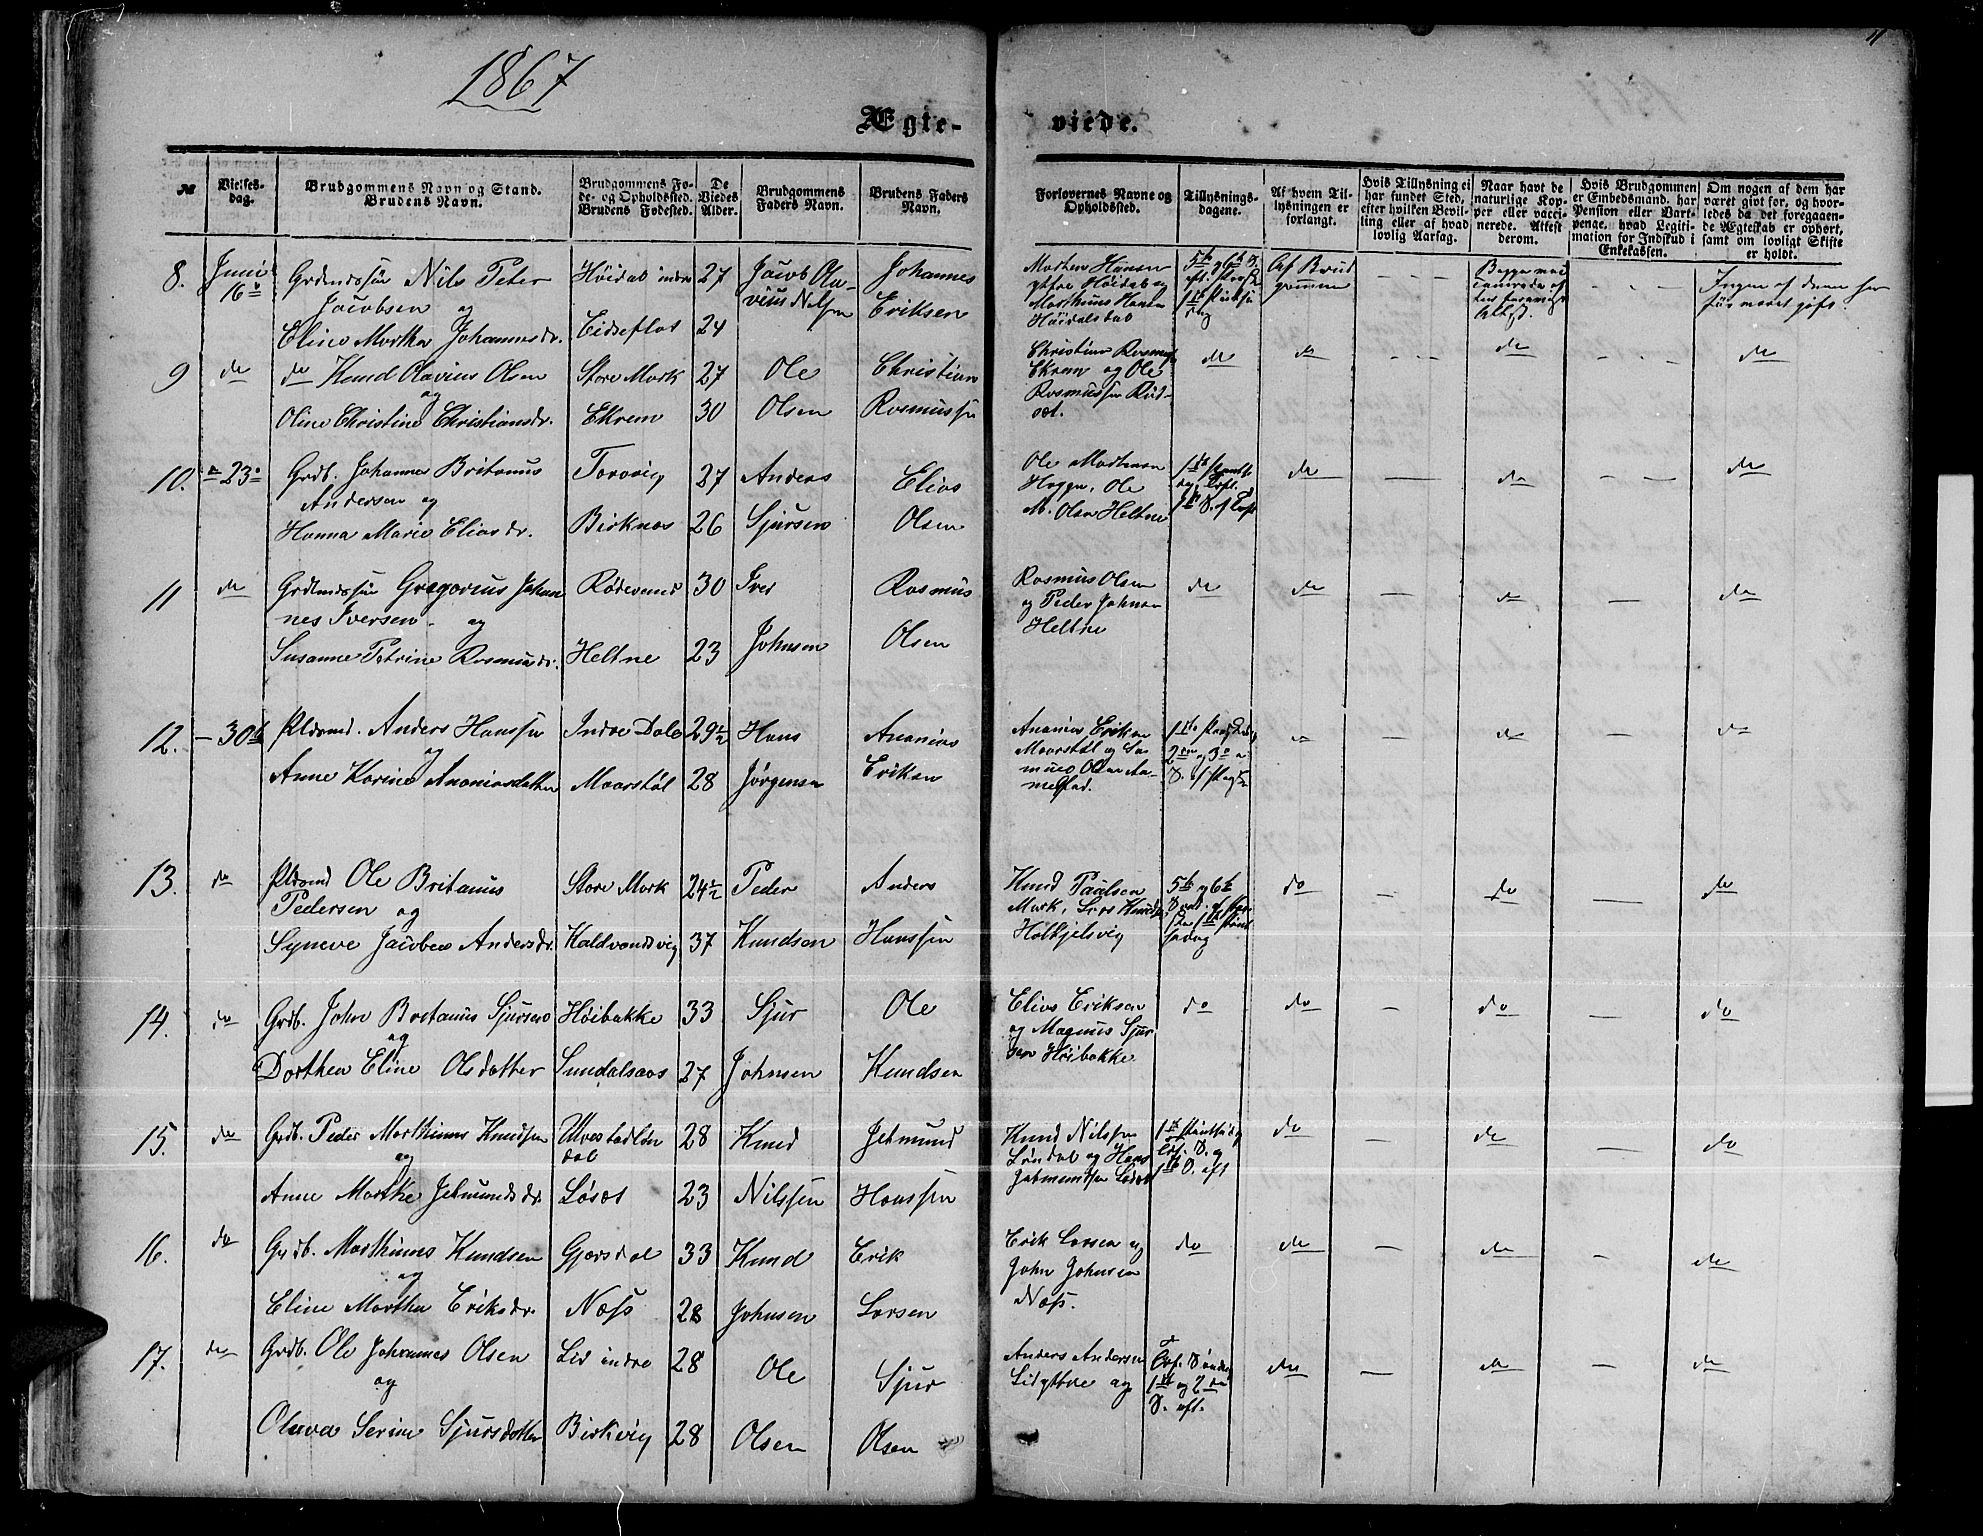 1867
11
Ægte-
viede.
№
Vielses-
dag.
Brudgommens Navn og Stand.
Brudens Navn.
Brudgommens Fø-
de- og Opholdssted.
Brudens Fødested.
De
Viedes
Alder.
Brudgommens
Faders Navn.
Brudens Faders
Navn.
Forlovernes Navne og
Opholdssted.
Tillysnings-
dagene.
Af hvem Til-
lysningen er
forlangt.
Hvis Tillysning ei
har fundet Sted,
efter hvilken Bevil-
ling eller af hvad
lovlig Aarsag.
Naar havt de
naturlige Kop-
per eller vacci-
nerede. Attest
derom.
Hvis Brudgommen
er Embedsmand, har
Pension eller Vart-
penge, hvad Legiti-
mation for Indskud i
Enkekassen.
Om nogen af dem har
været givt før, og hvor-
ledes da det foregaaen-
de Ægteskab er ophørt,
samt om lovligt Skifte
er holdt.
8.
Juni
16
Nils Peter
Jacobsen
og
Eline Marthe Johannesdr.
Høidal indre
Eidseflot
27
24
Jacob Ola-
vius Nilsen
Johannes
Eriksen
Mathen Hansen
ytre Høidal og
Marthinus Hansen
Høidalsbab
Af Brud
gommen
- - -
- - -
Ingen af dem har
før været gift.
9
do
do Knud Olavius Olsen
og
Oline Christine Christiansdr.
Store Mork
Ekrem
27
30
Ole
Olsen
Christian
Rasmussen
Christian Rasmus
Ekrem og Ole
Rasmussen Rød-
set.
do
do
- -
do
- - -
do
10.
23
Grdb. Johannes Britanus
Andersen og
Hanna Marie Eliasdr.
Torvvig
Birknes
27
26
Anders
Sjursen
Elias
Olsen
Ole Mathesen
Hagen, Ole
M. Olsen Heltne
do
—
do
- -
do
11
do
Gregorius Johan
nes Iversen og
Susanne Petrine Rasmusdr.
Rødesund
Heltne
30
23
Iver
Johnsen
Rasmus
Olsen
Rasmus Olsen
og Peder Johnsen
Heltne
do
do
—
do
—
do
12.
30
Anders Hanssen
og
Anne Karine Ananiasdatter
Indre Dale
Maarstøl
29½
28
Hans
Jørgensen
Ananias
Eriksen
Ananias Eriksen
Maarstøl og
Olsen Aa-
mestad.
do
—
do
—
do
13.
do
Ole Britanus
Pedersen og
Syneve Jacobea Andersdr.
Store Mork
Kaldvandsvig
24½
37
Peder
Knudsen
Anders
Hanssen
Knud Paulsen
Mork, Lars Knuds
Holkjelsvig
5te og 6te
do
—
do
—
do
14.
do
Grdb. John Britanus Sjursen
og
Dorthea Eline Olsdatter
Høibakke
Sundalsaas
33
27
Sjur
Johnsen
Ole
Knudsen
Elias Eriksen
og Magnus Sjur
sen Høibakke
do
do
—
do
—
do
15.
do
Grdb. Peder Marthinus Knudsen
og
Anne Marthe Jetmundsdr.
Ulvestadløn
dal
Løset
28
23
Knud
Nilssen
Jetmund
Hanssen
Knud Nilssen
Løndal og Hans
Jetmundsen Løset
do
—
do
—
do
16.
do
Grdb. Marthinus Knudsen
og
Eline Marthea Eriksdr.
Gjersdal
Næss
33
28
Knud
Johnsen
Erik
Larsen
Erik Larsen og
John Johnsen
Næss.
do
do
—
do
—
do
17.
do
Grdb. Ole Johannes Olsen
og
Olava Serine Sjursdatter
Lid indre
Birkvig
28
28
Ole
Olsen
Sjur
Olsen
Anders Andersen
Lid ytre og
1ste og 2den
S. eft.
do
—
do
—
do